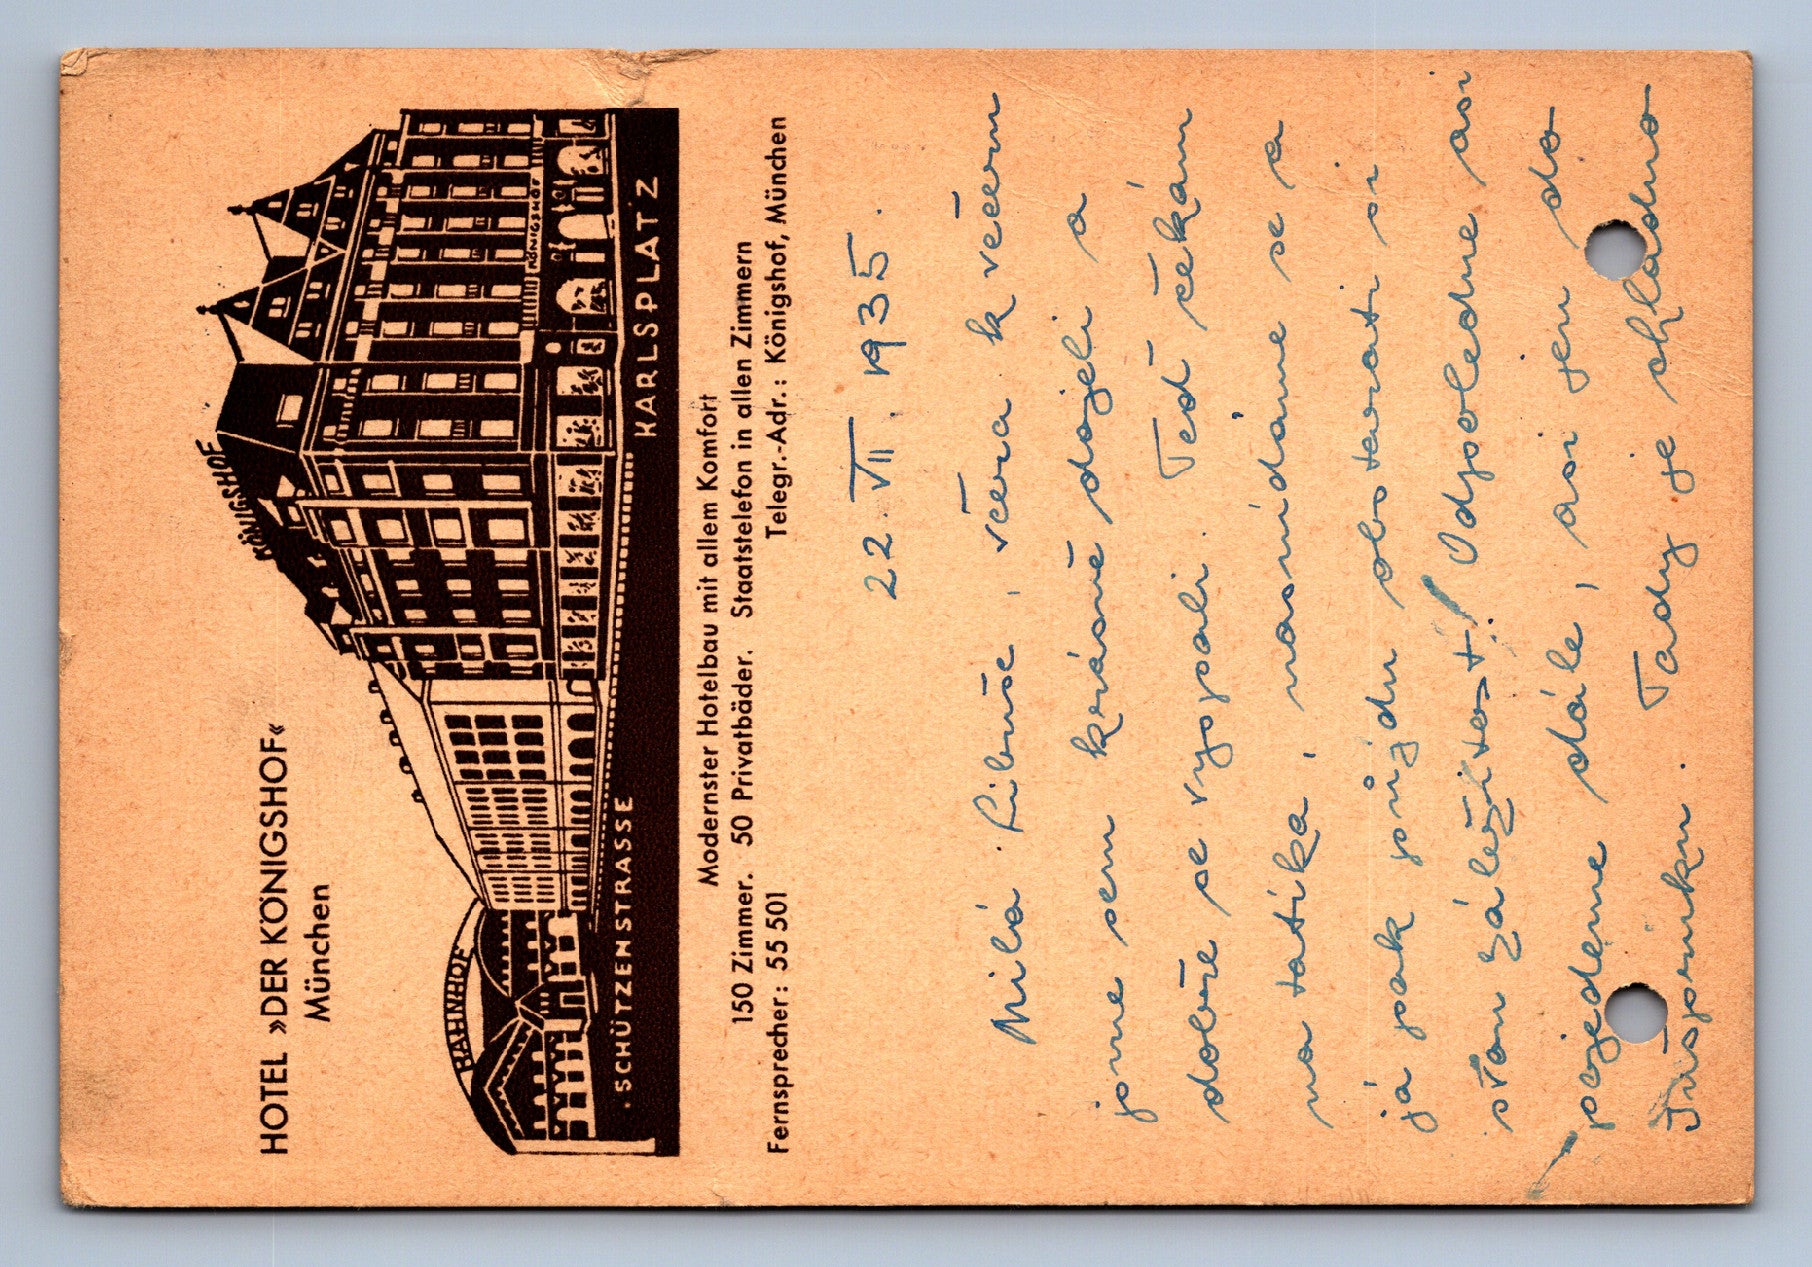 HOTEL »DER KÖNIGSHOF«
München
KÖNIGSHOF
KÖNIGSHOF
BAHNHOF
SCHÜTZENSTRASSE
KARLSPLATZ
Modernster Hotelbau mit allem Komfort
150 Zimmer. 50 Privatbäder. Staatstelefon in allen Zimmern
Fernsprecher: 55 501 Telegr.-Adr.: Königshof, München
22. VII. 1935.
Milá Libuše, včera k večeru
jsme sem krásně dojeli a
dobře se vyspali. Teď čekám
na tatíka, nasnídáme se a
já pak půjdu obstarati si
tu záležitost! Odpoledne asi
pojedeme dále, asi jen do
Tady je chladno